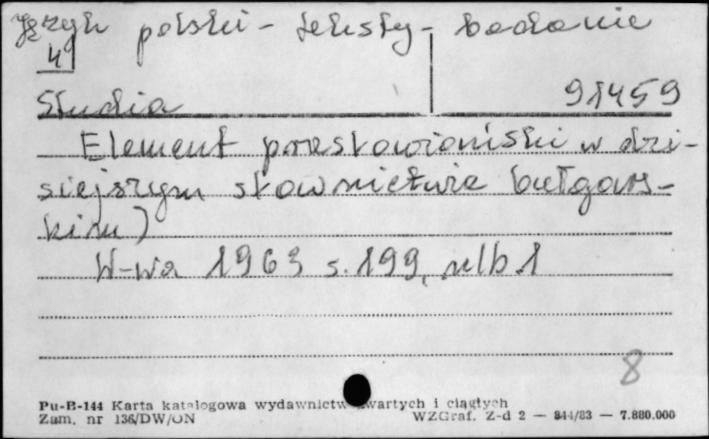 Język polski - teksty - badanie
4
Studia 91459
Element prasłowiański w dzi-
siejszym słownictwie bułgars-
kim)
W-wa 1963 s. 199, nlb 1
8
Pu-B-144 Karta katalogowa wydawnictw zwartych i ciągłych
Zam. nr 136/DW/ON WZGraf. Z-d 2 — 844/83 — 7.880.000